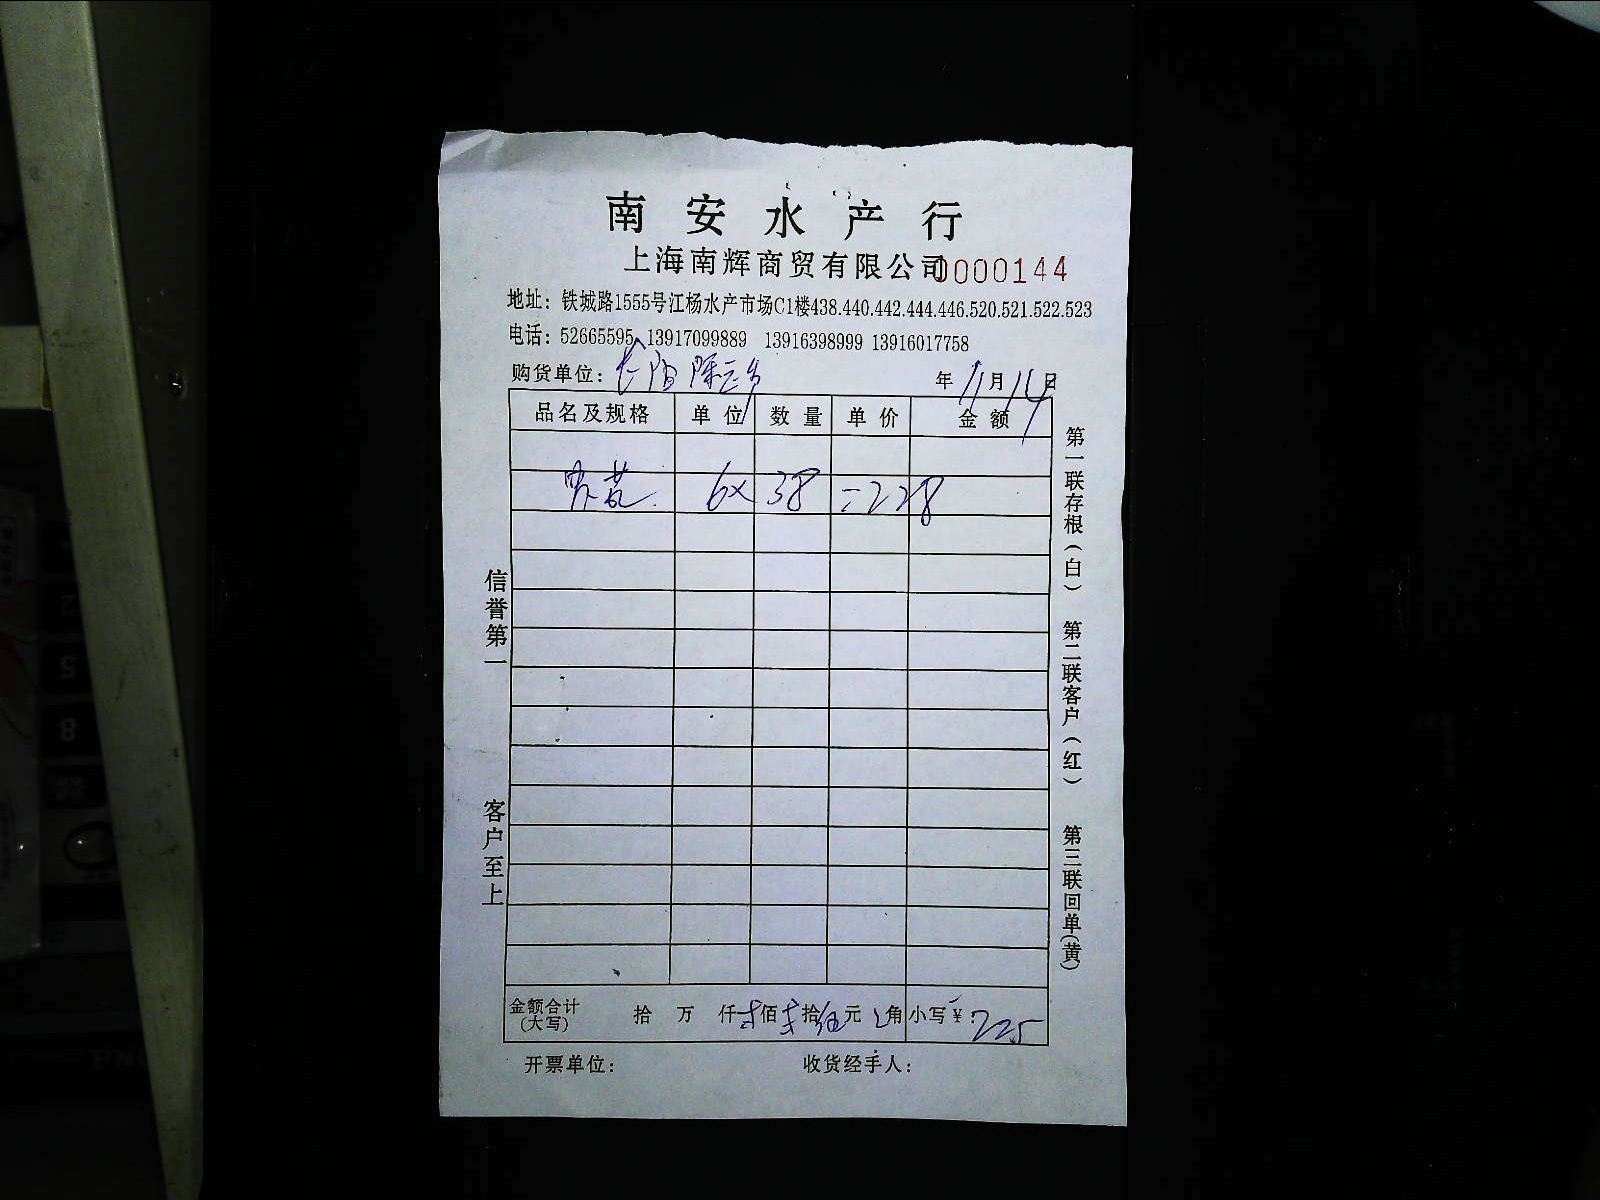 南安水产行
上海南辉商贸有限公司 0000144
地址：铁城路1555号江杨水产市场C1楼438.440.442.444.446.520.521.522.523
电话：52665595 13917099889 13916398999 13916017758
购货单位： 年 11月14日
品名及规格 单位 数量 单价 金额
6× 38 =228
信誉第一
客户至上
第一联存根（白）
第二联客户（红）
第三联回单（黄）
金额合计（大写） 拾 万 仟 贰佰 贰拾 伍元 角 小写￥：225
开票单位： 收货经手人：
5
8